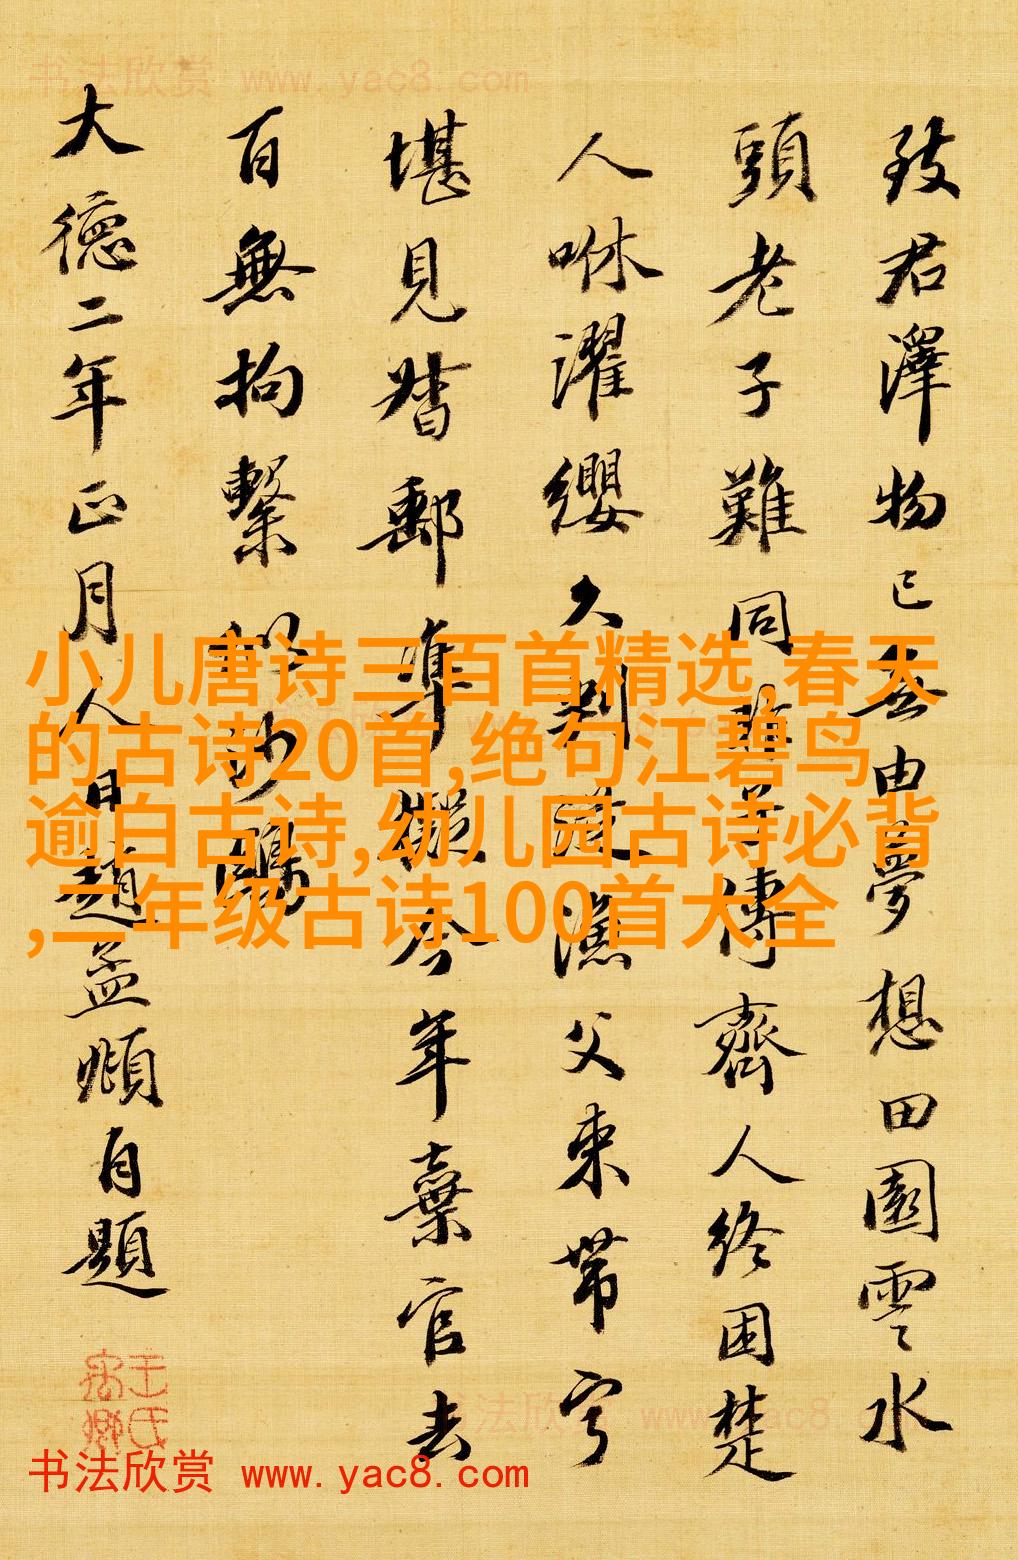 书法欣赏 www.yac8.com
致君澤物已无由夢想田園雲水
頭老子難同非子傳齊人終困楚
人咻濯纓久判從漁父束帶寧
堪見督郵準擬今年棄官去
百無拘繫似沙鷗
大德二年正月人日趙孟頫自題
小儿唐诗三百首精选,春天
的古诗20首,绝句江碧鸟
逾白古诗,幼儿园古诗必背
,二年级古诗100首大全
书法欣赏 www.yac8.com